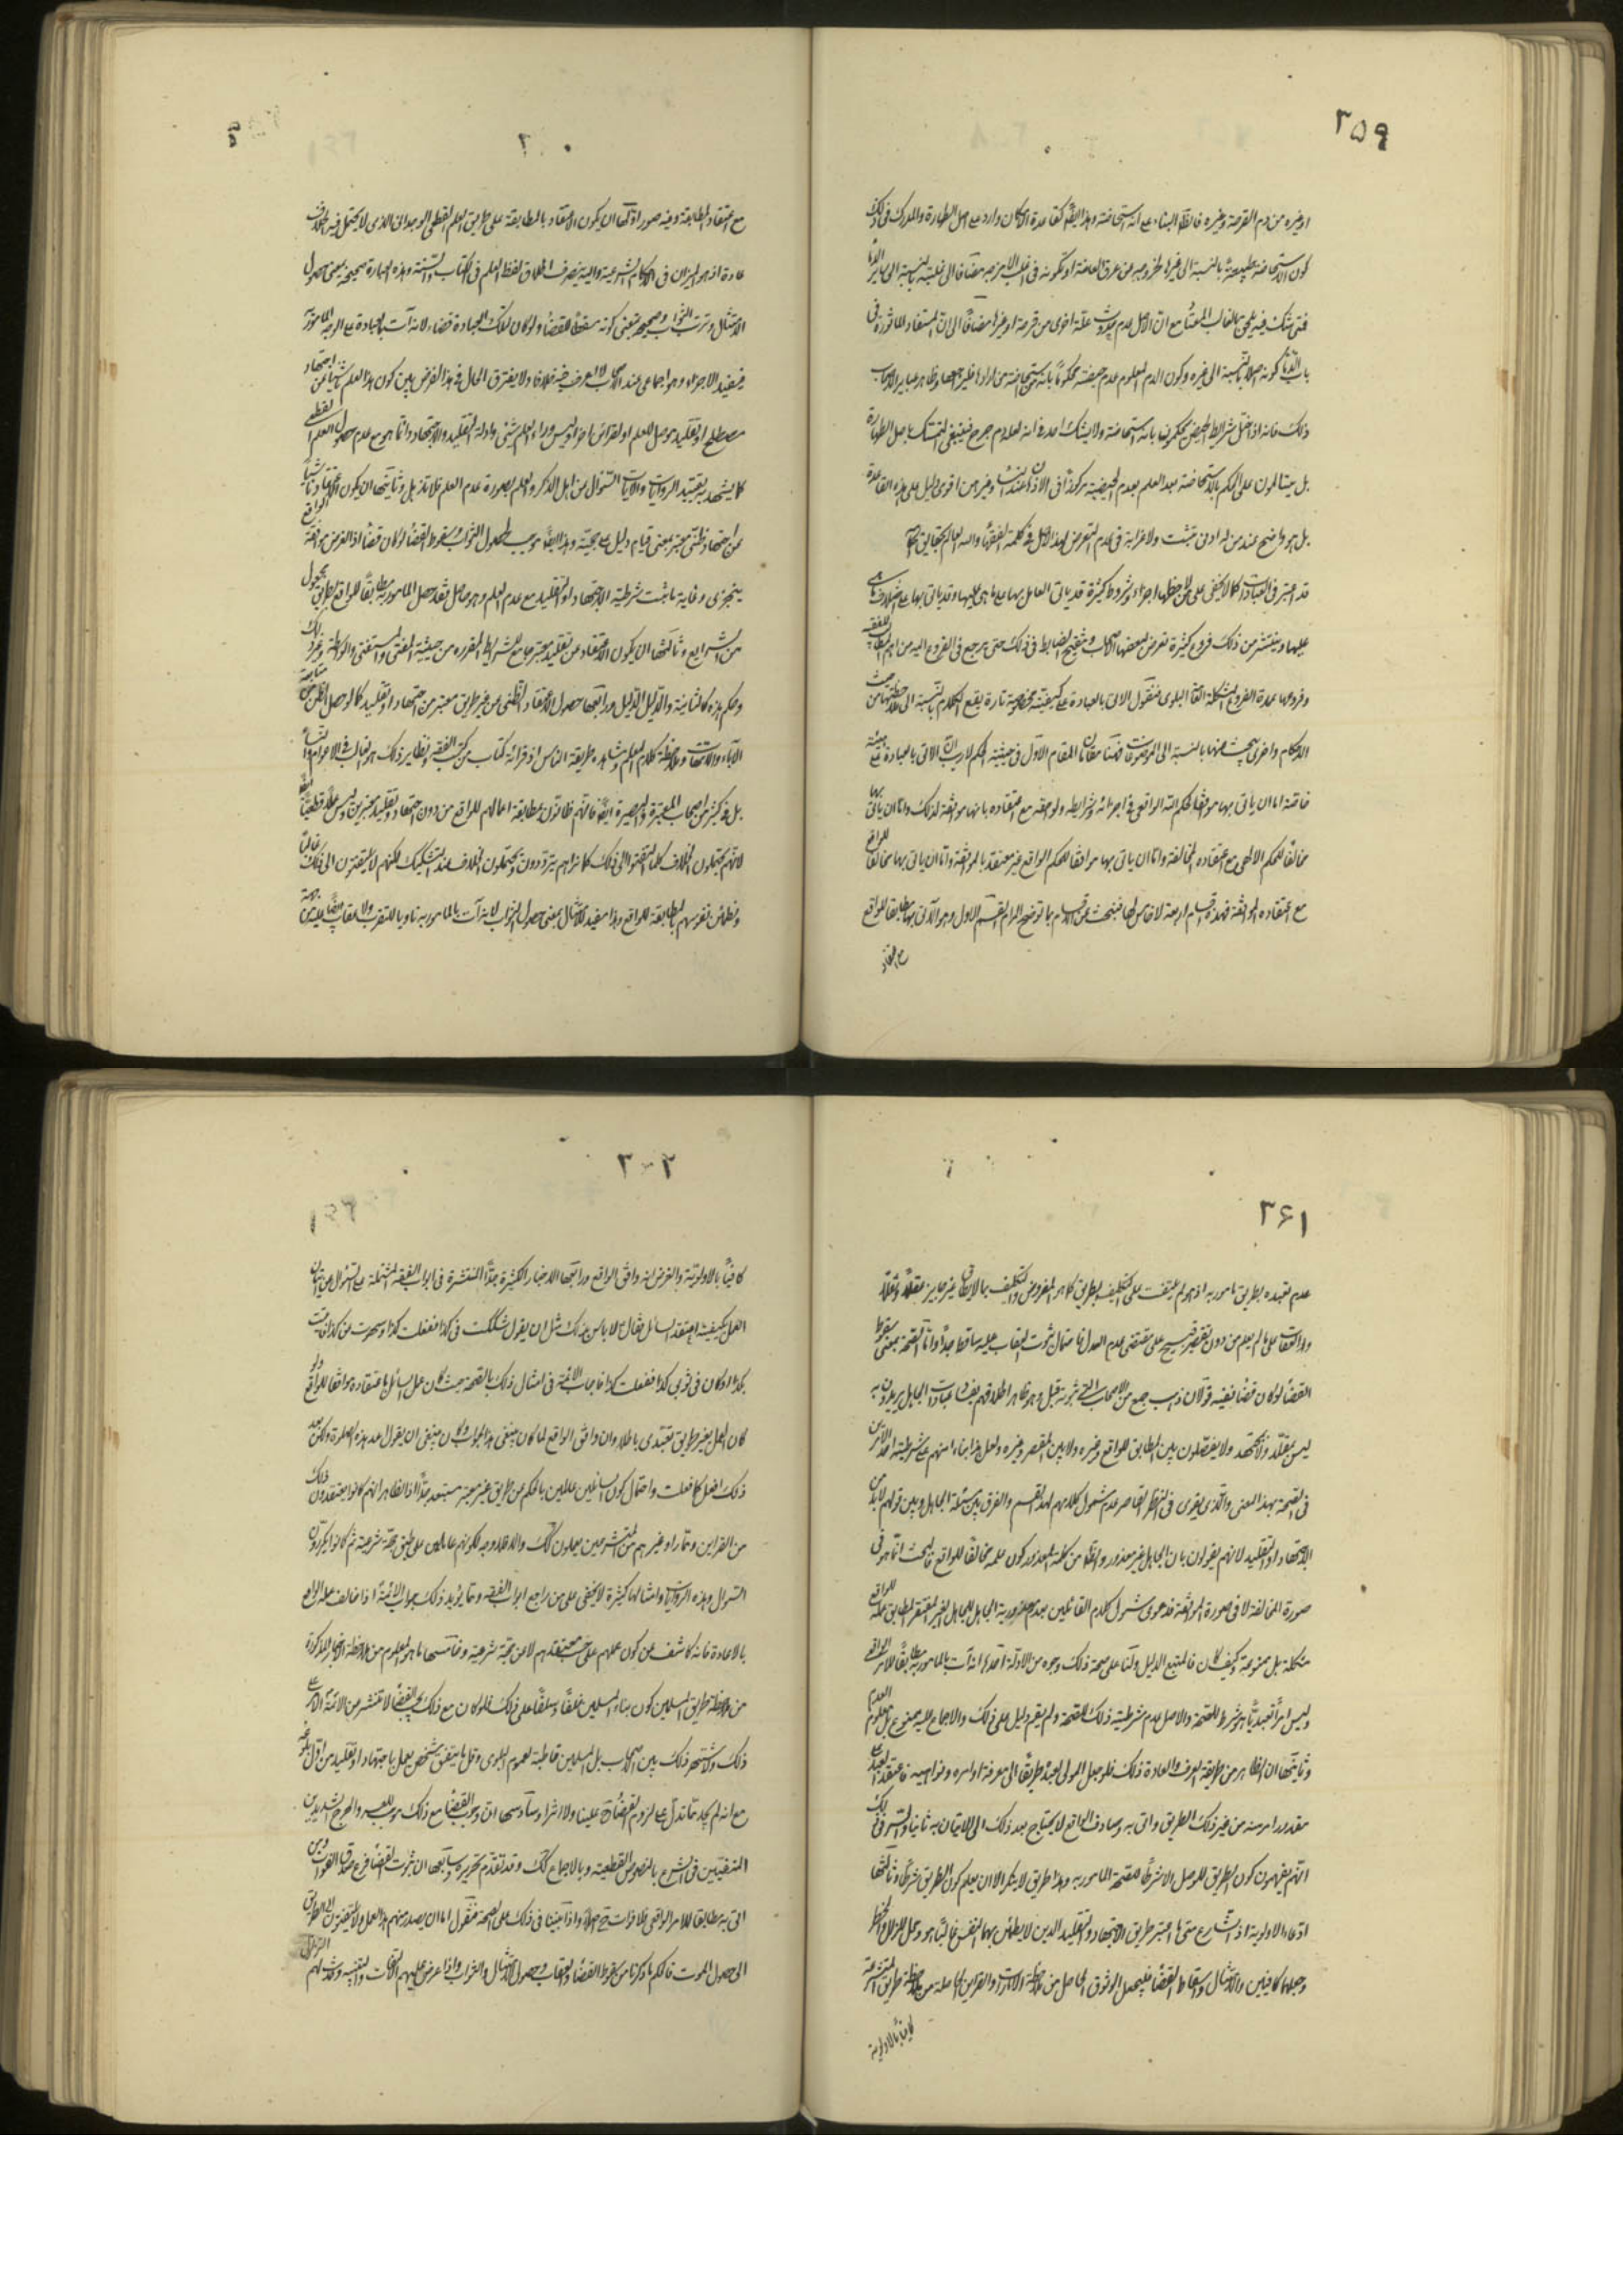 ٢٥٩
او غيره من دم القرحة وغيره فالظ البناء على انه استحاضة وهذا ايضا كقاعدة الامكان وارد على اصل الطهارة والمدرك فى ذلك
كون الاستحاضة طبيعية بالنسبة الى غيرها
فتى شك فيه يلحق بالغالب مع ان الاصل عدم حدوث علة اخرى من قرحة او غيرها مضافا الى ان المستفاد
باب الدماء كونه اصلا بالنسبة الى غيره وكون الدم المعلوم عدم حيضيته محكوما بانه استحاضة
ذلك فانه اذا اختل شرايط الحيض يحكمون بانه استحاضة ولا يشك احد فى انه لعله دم جرح فينبغى التمسك باصل الطهارة
بل يتسالمون على الحكم بالاستحاضة بعد العلم بعدم الحيضية اقوى دليل على هذه القاعدة
بل هو واضح عند من له ادنى تثبت ولا غرابة فى عدم التعرض لهذا الاصل فى كلمة الفقهاء والله العالم بحقايق احكامه
قد اعتبر فى العبادات كما لا يخفى على من لاحظها اجزاء وشروط كثيرة قد ياتى العامل بها على ما هى عليها وقد ياتى بها على خلاف ما هى
عليها وينتشر من ذلك فروع كثيرة تعرض لبعضها الاصحاب وتنقيح الضابط فى ذلك حتى يرجع فى الفروع اليه من اهم المطالب الفقهية
وفروعها عمدة الفروع المشكلة العامة البلوى فنقول الاتى بالعبادة على كيفية مخصوصة تارة يقع الكلام بالنسبة الى ملاحظتها من حيث
الاحكام واخرى يبحث عنها بالنسبة الى الموضوعات فهنا مقامان المقام الاول فى حيثية الحكم لا ريب ان الاتى بالعبادة على هيئة
خاصة اما ان ياتى بها موافقا لحكم الله الواقعى فى اجزائه وشرايطه ولواحقه مع اعتقاده بانها موافقة لذلك واما ان ياتى بها
مخالفا للحكم الالهى مع اعتقاده المخالفة واما ان ياتى بها موافقا للحكم الواقع غير معتقد بالموافقة واما ان ياتى بها مخالفا للواقع
مع اعتقاده الموافقة فهذه اقسام اربعة لا خامس لها فنبحث عن الاقسام بما توضح المرام القسم الاول وهو الاتى بها مطابقا للواقع
مع اعتقاد
مع اعتقاد المطابقة وفيه صور اولها ان يكون الاعتقاد بالمطابقة على طريق العلم القطعى الوجدانى الذى لا يحتمل فيه الخلاف
عادة اذ هو الميزان فى الاحكام الشرعية واليه ينصرف اطلاق لفظ العلم فى الكتاب والسنة وهذه العبارة صحيحة بمعنى حصول
الامتثال وترتب الثواب وصحيحة بمعنى كونه مسقطا للقضاء ولو كان لتلك العبادة قضاء لانه آت بالعبادة على الوجه المامور
فيفيد الاجزاء وهو اجماعى عند الاصحاب لا اعرف فيه خلافا ولا يفترق الحال فى هذا الفرض بين كون هذا العلم ناشيا عن اجتهاد
مصطلح او تقليد موصل للعلم او لقرائن اخر اذ ليس وراء العلم شئ وادلة التقليد والاجتهاد انما هو مع عدم حصول العلم القطعى
كما يشهد به تقييد الروايات والايات السؤال من اهل الذكر والعلم بصورة عدم العلم فلا تذهل وثانيتها ان يكون الاعتقاد ناشيا
عن اجتهاد ظنى معتبر بمعنى قيام دليل على حجيته وهذا ايضا موجب لحصول الثواب وسقوط القضاء لو كان قضاء اذ الفرض موافقة الواقع
يتجزى وغاية ما ثبت شرطية الاجتهاد او التقليد مع عدم العلم وهو حاصل فقد حصل المامور به مطابقا للواقع بطريق مجعول
من الشرايع وثالثتها ان يكون الاعتقاد عن تقليد معتبر جامع للشرايط المقررة من حيثية المفتى والمستفتى والواسطة وغير ذلك
وحكم هذه كالثانية والدليل الدليل ورابعتها حصول الاعتقاد الظنى من غير طريق معتبر من اجتهاد او تقليد كما لو حصل الظن من متابعة
الآباء والامهات وملاحظة كلام المعلم ومشاهدة طريقة الناس او قرائة كتاب من كتب الفقه ونظاير ذلك هو الغالب فى الاعوام والنساء
بل فى كثير من اصحاب المعرفة والبصيرة ايضا فانهم ظانون بمطابقة اعمالهم للواقع من دون اجتهاد وتقليد معتبرين وليس علما قطعيا
لانهم يحتملون الخلاف كلما التفتوا الى ذلك كما نراهم يترددون ويحتملون الخلاف عند التشكيك لكنهم لا يلتفتون الى ذلك غالبا
وتطمئن نفوسهم بالمطابقة للواقع وهذا مفيد للامتثال بمعنى حصول الثواب لانه آت بالمامور به ناويا للتقرب ولا عقاب ايضا عليه من جهة
٣٦١
عدم تعبده بطريق مامور به اذ هو لم يلتفت على التكليف بالطريق كما هو المفروض والتكليف بما لا يطاق غير جايز عقلا ونقلا
والعقاب على ما لم يعلم من دون تقصير قبيح على مقتضى عدم العدل فاحتمال ثبوت العقاب عليه ساقط جدا واما الصحة بمعنى سقوط
القضاء لو كان قضاء ففيه قولان ذهب جمع من الاصحاب الى ثبوته قبل وهو ظاهر اطلاقهم بفساد عبادات الجاهل يريدون به
ليس بمقلد ولا مجتهد ولا يفصلون بين المطابق للواقع وغيره ولا بين المقصر وغيره ولعل هذا بناء منهم على شرطية احد الامرين
فى الصحة بهذا المعنى والذى يقوى فى النظر القاصر عدم شمول كلامهم لهذا القسم والفرق بين مسئلة الجاهل وبين قولهم لابد من
الاجتهاد او التقليد لانهم يقولون بان الجاهل غير معذور والظاهر من كلمة المعذور كون عمله مخالفا للواقع فالبحث انما هو فى
صورة المخالفة لا فى صورة الموافقة فدعوى شمول كلام القائلين بعدم معذورية الجاهل للجاهل الغير المقصر المطابق عمله للواقع
مشكلة بل ممنوعة وكيف كان فالمتبع الدليل ولنا على صحة ذلك وجوه من الادلة احدها انه آت بالمامور به مطابقا للامر الواقعى
وليس امرا تعبديا هو شرط للصحة والاصل عدم شرطية ذلك للصحة ولم يقم دليل على ذلك والاجماع عليه ممنوع بل معلوم العدم
وثانيها ان الظاهر من طريقة العرف والعادة ذلك فلو جعل المولى لعبده طريقا الى معرفة اوامره ونواهيه فاعتقد العبد على
مقدور امر منه من غير ذلك الطريق واتى به وصادف الواقع لا يحتاج بعد ذلك الى الاتيان به ثانيا والسر فى ذلك
انهم يفهمون كون الطريق للوصل لا شرطا لصحة المامور به وهذا طريق لا ينكر الا ان يعلم كون الطريق شرطا وثالثها
ادعاء الاولوية اذ الشارع متى ما اعتبر طريق الاجتهاد والتقليد الذين لا يطمئن بهما النفس غالبا هو محل للزلل والخطر
وجعلهما كافيين والامتثال واسقاط القضاء فليجعل الوثوق الحاصل من ملاحظة الامارات والقراين الحاصلة من ملاحظة طريق المتشرعة
كافيا بالاولوية
٣٠٢
كافيا بالاولوية والفرض انه وافق الواقع ورابعها الاخبار الكثيرة جدا المنتشرة فى ابواب الفقه المشتملة على السؤال عن اتيان
العمل بكيفية اعتقد السائل فقال لا باس بذلك مثل ان يقول شككت فى كذا ففعلت كذا وسهوت من كذا
بكذا او كان فى ثوبى كذا ففعلت كذا فاجاب الائمة فى امثال ذلك بالصحة حيث كان عمل السائل باعتقاده موافقا للواقع ولو
كان العمل بغير طريق تعبدى باطلا وان وافق الواقع لما كان ينبغى هذا الجواب وكان ينبغى ان يقول اعد هذه الصلوة ولكن بعد
ذلك افعل كما فعلت واحتمال كون السائلين عالمين بالحكم من طريق غير معتبر مستبعد جدا اذ الظاهر انهم كانوا يعتقدون ذلك
من القراين وممارا وغيرهم من المتشرعين يعملون كذلك ولا وجه لكونهم عاملين على طبق حجة شرعية ثم كانوا يكررون
السؤال وهذه الروايات وامثالها كثيرة لا يخفى على من راجع ابواب الفقه ومما يؤيد ذلك جواب الائمة اذا خالف عمله الواقع
بالاعادة فانه كاشف عن كون عملهم على حسب معتقدهم لا عن حجة شرعية وخامسها ما هو المعلوم من ملاحظة الاخبار المذكورة
من ملاحظة طريق المسلمين كون بناء المسلمين خلفا وسلفا على ذلك فلو كان مع ذلك يجب القضاء لانتشر من الائمة الامر على
ذلك ولاشتهر ذلك بين الاصحاب بل المسلمين قاطبة لعموم البلوى وقل ما يتفق شخص يعمل باجتهاد او تقليد من اول بلوغه
مع انه لم نجد ما تدل على لزوم القضاء عينا ولا اثرا وسادسها ان وجوب القضاء مع ذلك موجب للعسر والحرج الشديدين
المنفيين فى الشرع بالنصوص القطعية وبالاجماع كذلك وقد تقدم تحريره وسابعها ان ثبوت القضاء فرع صدق الفوات ومن
اتى به مطابقا للامر الواقعى فلا فوات واذا بنينا فى ذلك على الصحة فنقول اما ان يصدر منهم هذا العمل ولا يلتفتون الى الطريق
الى حصول الموت فالحكم ما ذكرنا من سقوط القضاء والعقاب وحصول الامتثال والثواب واذا عرض عليهم الالتفات والتنبيه وحدث لهم